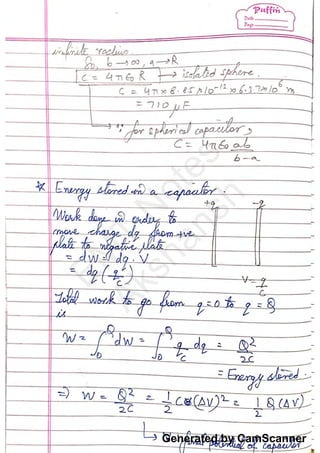 Puffin
Date
Page
infinite radius
So, b → ∞, a → R
C = 4πε₀R → isolated sphere.
C = 4π × 8.85 × 10⁻¹² × 6.37 × 10⁶ m
= 710 μF
∵ for spherical capacitor,
C = 4πε₀ab / b-a
* Energy stored in a capacitor.
+q -q
Work done in order to
move charge dq from +ve
plate to negative plate
= dW = dq . V
= dq (q/C)
V = q/C
Total work to go from q = 0 to q = Q
is
W = ∫₀^Q dW = ∫₀^Q q/C dq = Q²/2C
= Energy stored.
⇒ W = Q²/2C = 1/2 C (ΔV)² = 1/2 Q (ΔV)
↳ final potential of capacitor
Generated by CamScanner